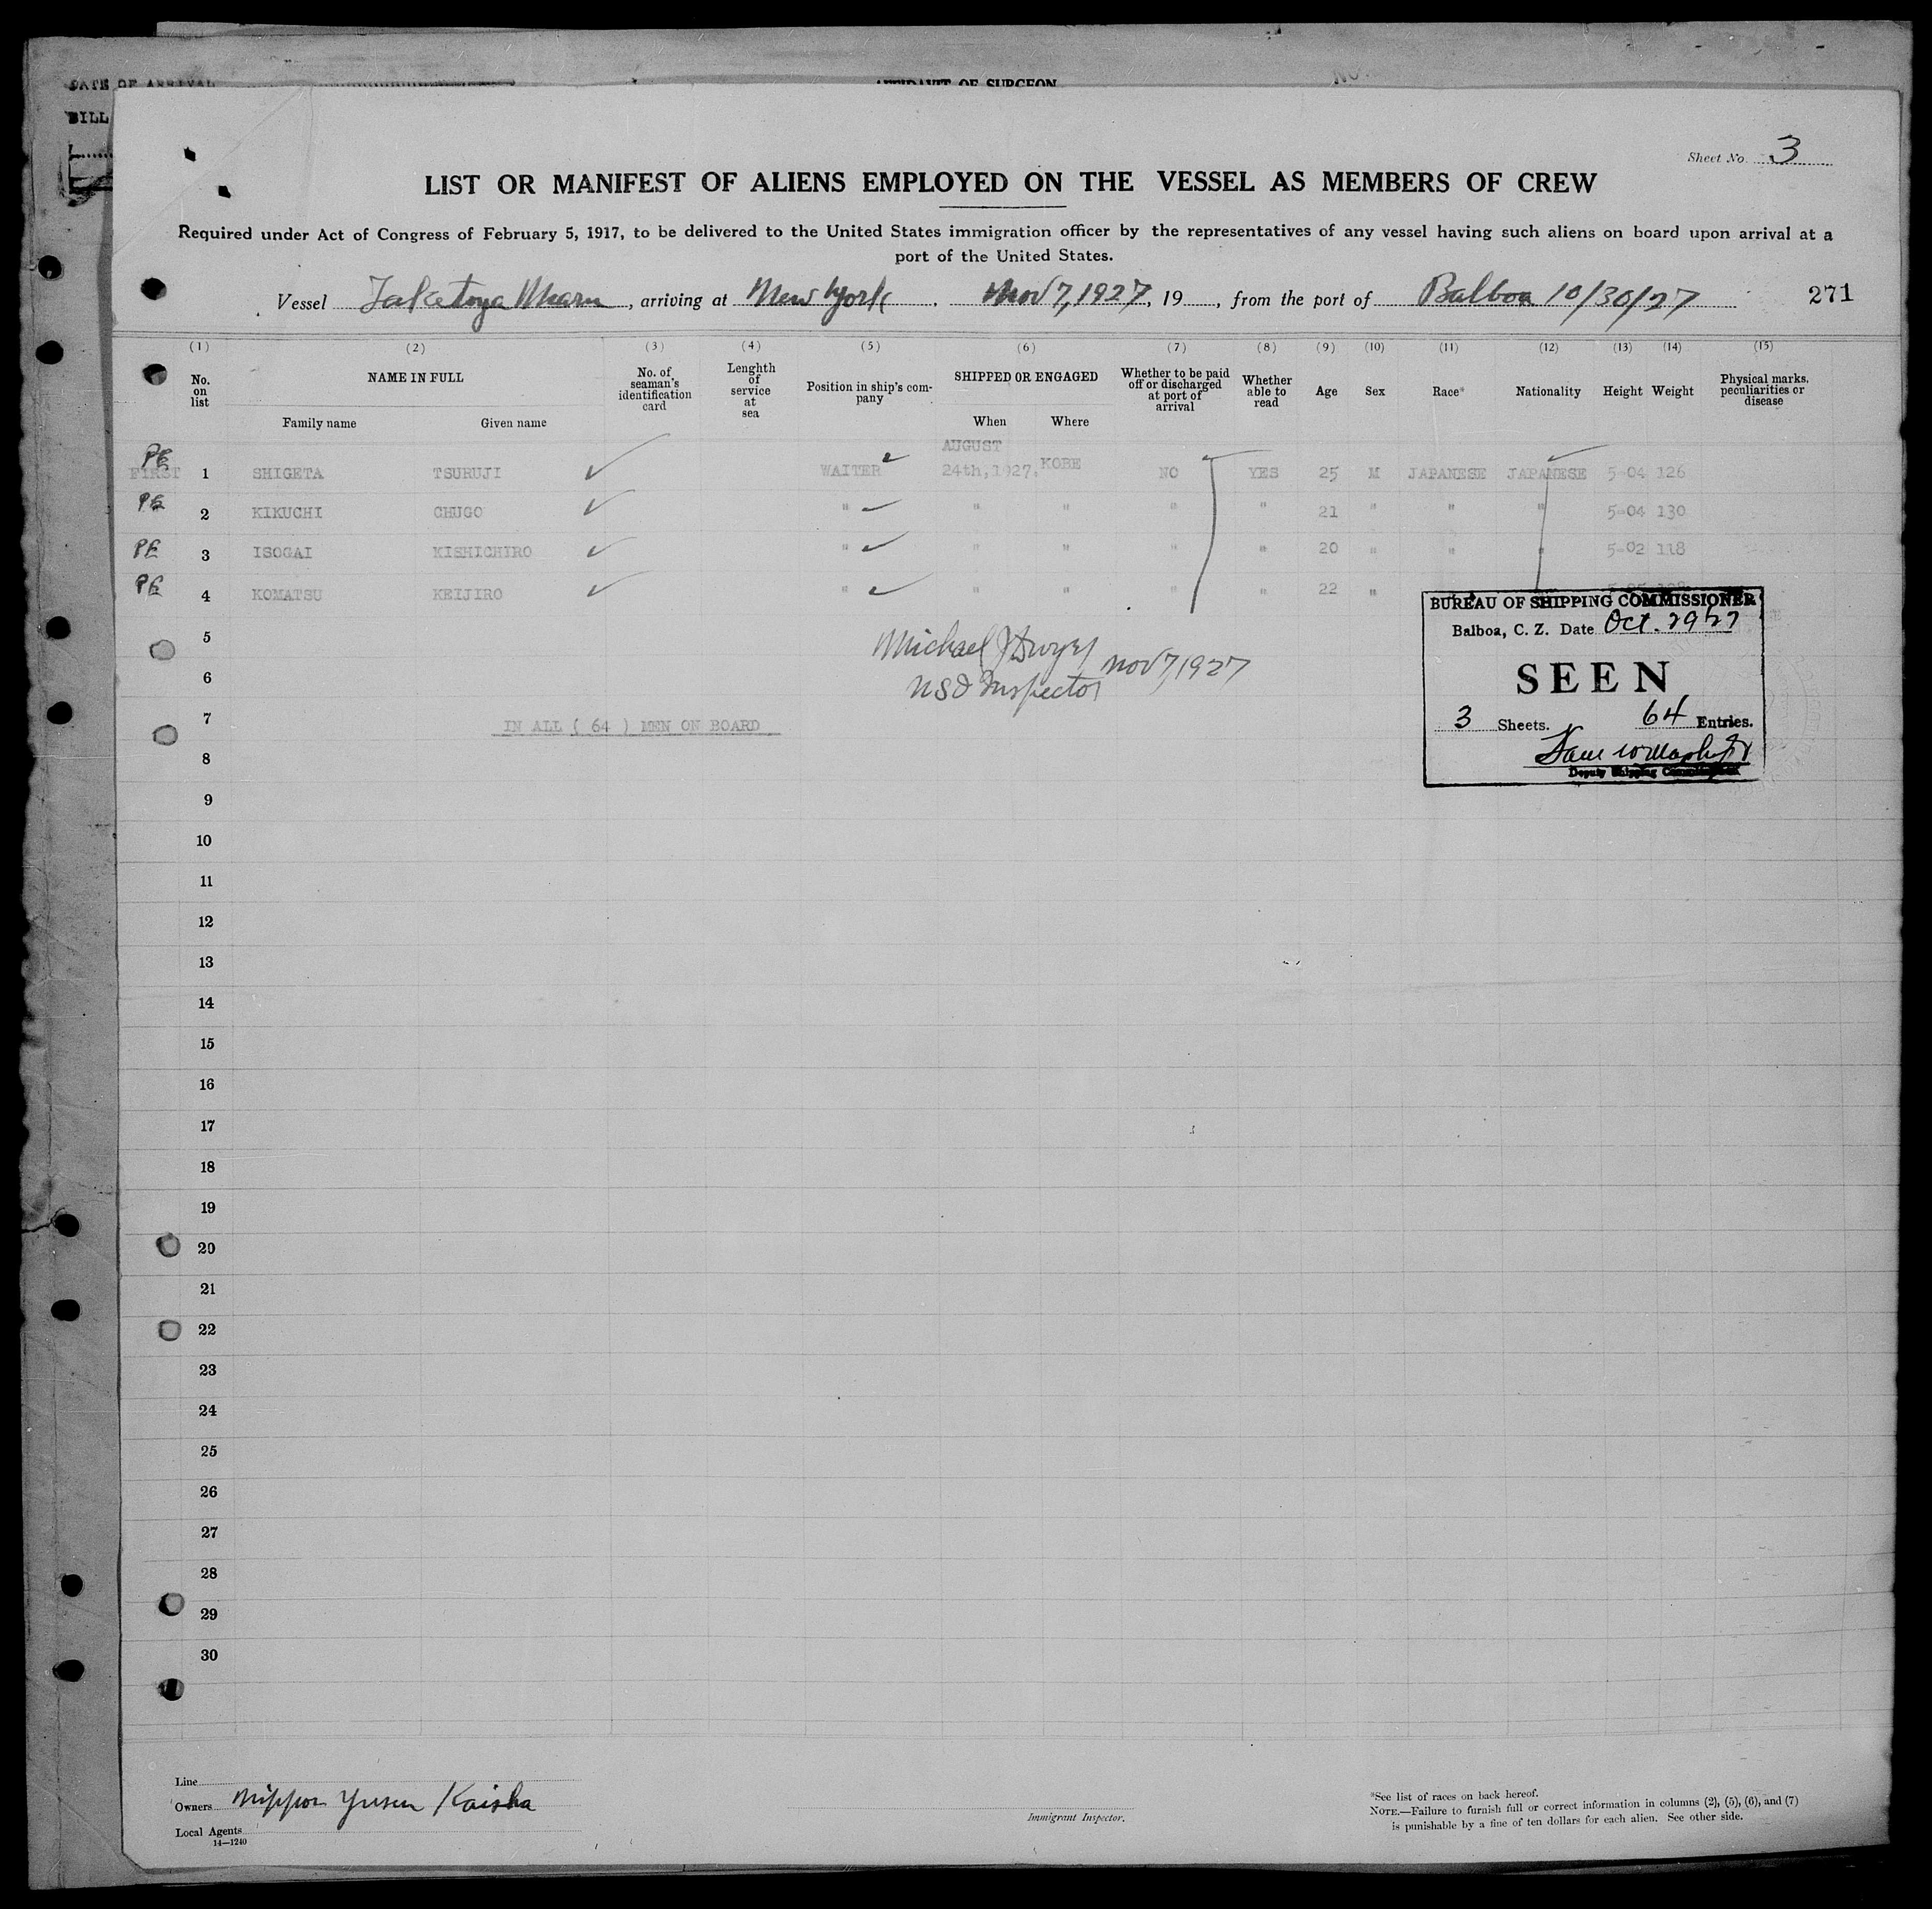 DATE OF ARRIVAL
AFFIDAVIT OF SURGEON
NO.
BILL
Sheet No. 3
LIST OR MANIFEST OF ALIENS EMPLOYED ON THE VESSEL AS MEMBERS OF CREW
Required under Act of Congress of February 5, 1917, to be delivered to the United States immigration officer by the representatives of any vessel having such aliens on board upon arrival at a
port of the United States.
Vessel Taketoya Maru, arriving at New York, Nov 7, 1927, 19, from the port of Balboa 10/30/27 271
(1) (2) (3) (4) (5) (6) (7) (8) (9) (10) (11) (12) (13) (14) (15)
No. on list NAME IN FULL Family name Given name No. of seaman's identification card Lenghth of service at sea Position in ship's company SHIPPED OR ENGAGED When Where Whether to be paid off or discharged at port of arrival Whether able to read Age Sex Race* Nationality Height Weight Physical marks, peculiarities or disease
PE FIRST 1 SHIGETA TSURUJI ✓ WAITER ✓ AUGUST 24th, 1927. KOBE NO YES 25 M JAPANESE JAPANESE 5-04 126
PE 2 KIKUCHI CHUGO ✓ " ✓ " " " " 21 " " " 5-04 130
PE 3 ISOGAI KISHICHIRO ✓ " ✓ " " " " 20 " " " 5-02 118
PE 4 KOMATSU KEIJIRO ✓ " ✓ " " " " 22 "
BUREAU OF SHIPPING COMMISSIONER
Balboa, C. Z. Date Oct. 29 27
SEEN
3 Sheets. 64 Entries.
Deputy Shipping Commissioner
5
Michael J Dwyer Nov 7, 1927
6
USI Inspector
7 IN ALL ( 64 ) MEN ON BOARD
8
9
10
11
12
13
14
15
16
17
18
19
20
21
22
23
24
25
26
27
28
29
30
Line
Owners Nippon Yusen Kaisha
Local Agents
14—1240
Immigrant Inspector.
*See list of races on back hereof.
NOTE.—Failure to furnish full or correct information in columns (2), (5), (6), and (7)
is punishable by a fine of ten dollars for each alien. See other side.